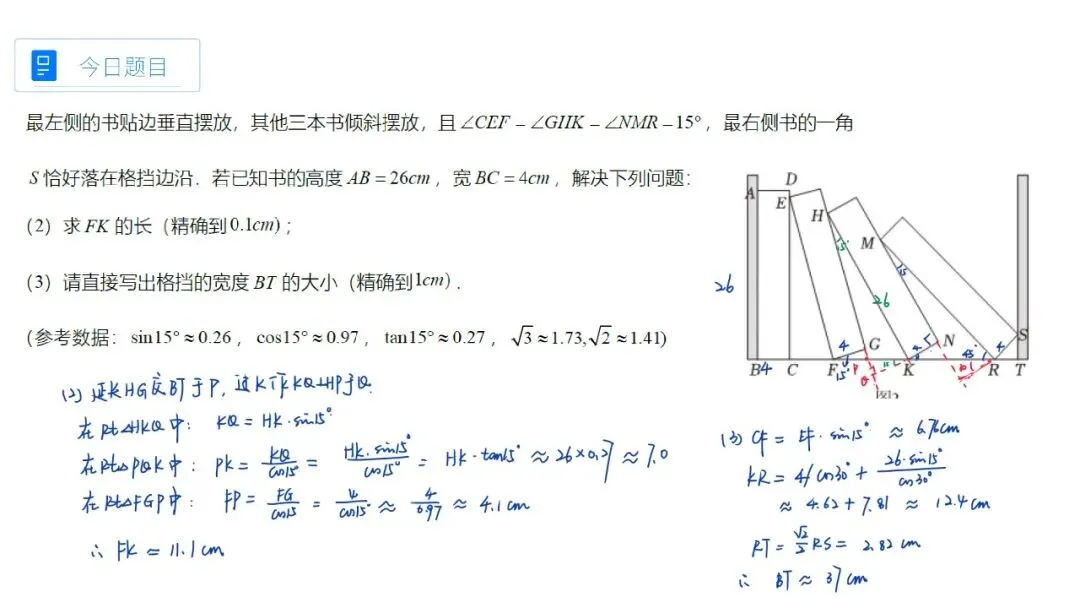 今日题目
最左侧的书贴边垂直摆放，其他三本书倾斜摆放，且 ∠CEF = ∠GHK = ∠NMR = 15°，最右侧书的一角
S 恰好落在格挡边沿．若已知书的高度 AB = 26cm，宽 BC = 4cm，解决下列问题：
（2）求 FK 的长（精确到 0.1cm）；
（3）请直接写出格挡的宽度 BT 的大小（精确到1cm）．
（参考数据：sin15° ≈ 0.26，cos15° ≈ 0.97，tan15° ≈ 0.27，√3 ≈ 1.73, √2 ≈ 1.41）
A D E H M G N S
B C F K R T
26 4 15° 26 15 4 15° P Q 4 45° 4
(2) 延长HG交BT于P，过K作KQ⊥HP于Q.
在Rt△HKQ中： KQ = HK·sin15°
在Rt△PQK中： PK = KQ/cos15° = HK·sin15°/cos15° = HK·tan15° ≈ 26×0.27 ≈ 7.0
在Rt△FGP中： FP = FG/cos15 = 4/cos15° ≈ 4/0.97 ≈ 4.1cm
∴ FK ≈ 11.1cm
(3) CF = EF·sin15° ≈ 6.76cm
KR = 4/cos30° + 26·sin15°/cos30°
≈ 4.62 + 7.81 ≈ 12.4cm
RT = √2/2 RS = 2.82cm
∴ BT ≈ 37cm